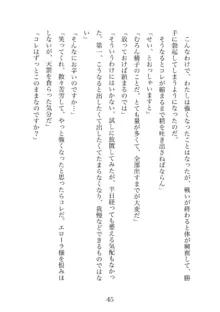 こんなわけで、わたしは強くなったことはなったが、戦いが終わると体が興奮して、勝
手に勃起してしまうようになってしまったのだ。
「そうなるとコレが縮まるまで精を吐き出さねばならぬ」
「せ、とおっしゃいますと」
「むろん精子のことだ。とても量が多くて、全部出すまでが大変だ」
「放っておけば鎮まるのでは」
「そういうわけにはいかない。試しに放置してみたが、半日経っても萎える気配もなかっ
た。第一、こみあげて出したくて出したくてたまらなくなり、我慢などできるものではな
い」
「そんなにお辛いのですか」
「笑ってくれ、散々苦労して、やっと強くなったと思ったらコレだ。エローラ様を恨みは
しないが、天罰を食らった気分だ」
「コレはずっとこのままなのですか？」
45